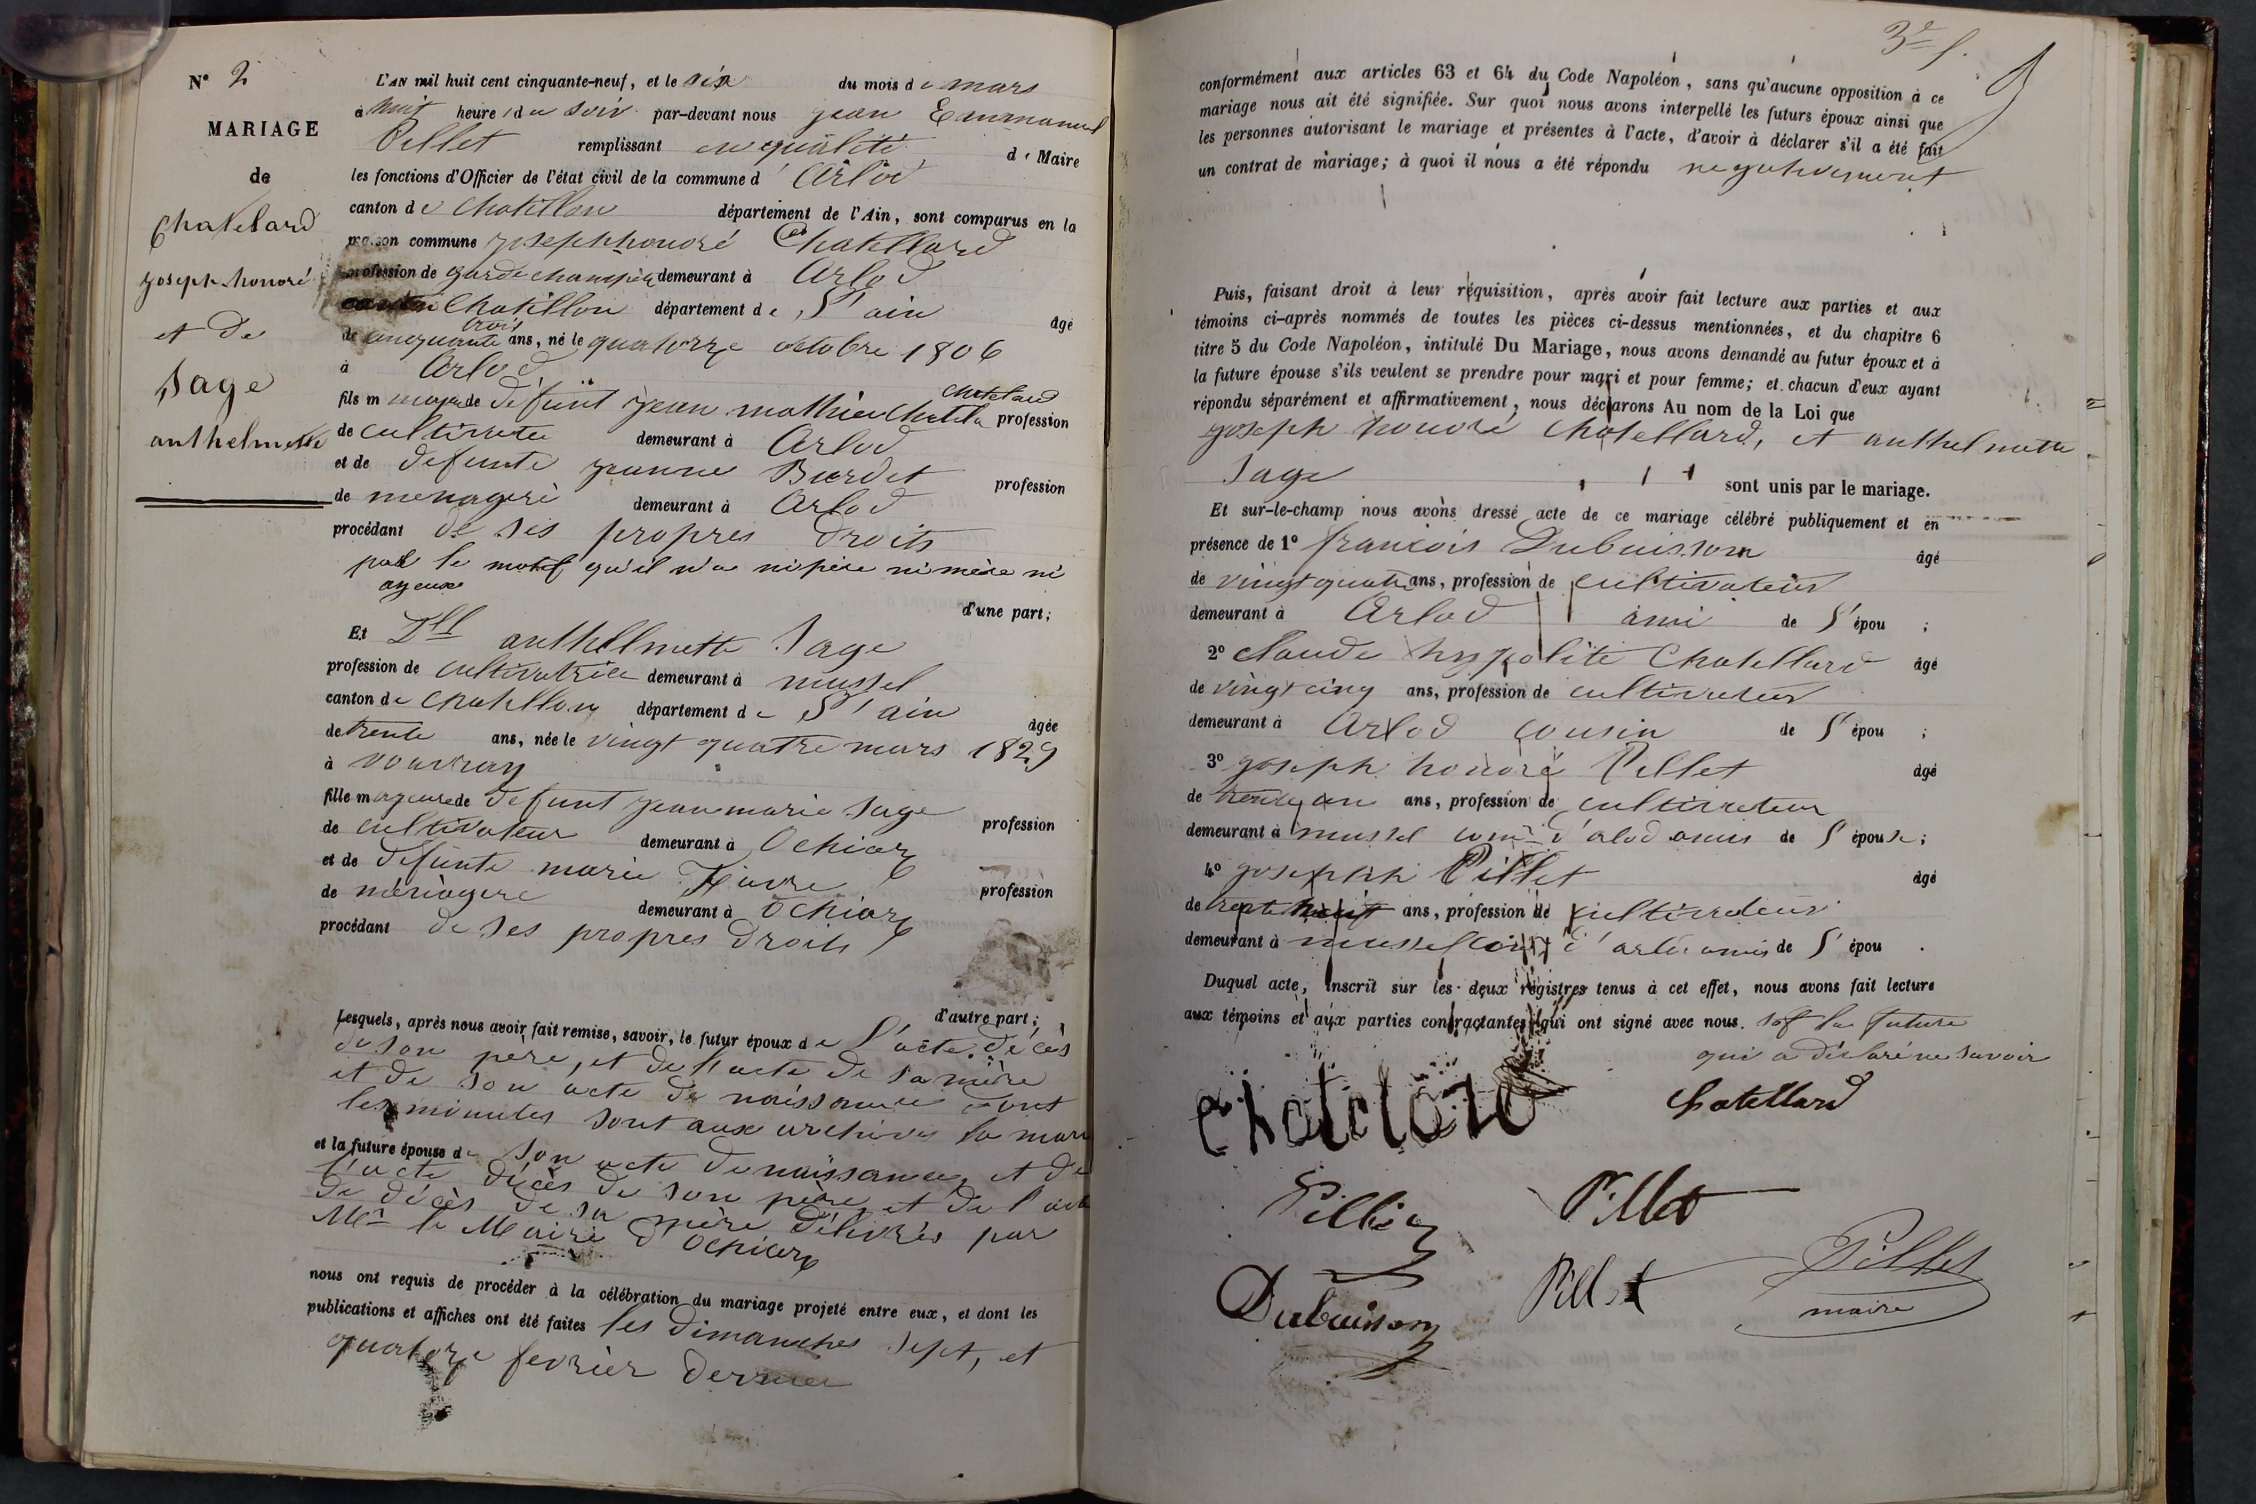 N° 2
MARIAGE
de
Chatelard
joseph honoré
et de
Sage
anthelmette
L'AN mil huit cent cinquante-neuf, et le six du mois de mars
à huit heures du soir par-devant nous jean Emmanuel
Pillet remplissant en qualité de Maire
les fonctions d'Officier de l'état civil de la commune d'Arlod
canton de Chatillon département de l'Ain, sont comparus en la
maison commune joseph honoré Chatellard
profession de garde champêtre demeurant à Arlod
canton Chatillon département de l'ain âgé
trois
de cinquante ans, né le quatorze octobre 1806
à Arlod
chatelard
fils majeur de défunt jean mathieu profession
de cultivateur demeurant à Arlod
et de defunte jeanne Burdet profession
de menagerè demeurant à Arlod
procédant de ses propres droits
par le motif qu'il n'a ni père ni mère ni
ayeux
d'une part;
Et Dlle anthelmette Sage
profession de cultivatrice demeurant à mussel
canton de Chatillon département de l'ain âgée
de trente ans, née le vingt quatre mars 1829
à vouvray
fille majeure de defunt jean marie Sage
de cultivateur demeurant à Ochiaz profession
et de défunte marie favre
de ménagere demeurant à Ochiaz profession
procédant de ses propres droits
d'autre part;
Lesquels, après nous avoir fait remise, savoir, le futur époux de l'acte décès
de son père, et de l'acte de sa mère
et de son acte de naissance dont
les minutes sont aux archives la
et la future épouse de son acte de naissance et de
l'acte décès de son père et de l'acte
de décès de sa mère délivrés par
Mr le Maire d'Ochiaz
nous ont requis de procéder à la célébration du mariage projeté entre eux, et dont les
publications et affiches ont été faites les dimanches sept, et
quatorze fevrier dernier
3e f.
conformément aux articles 63 et 64 du Code Napoléon, sans qu'aucune opposition à ce
mariage nous ait été signifiée. Sur quoi nous avons interpellé les futurs époux ainsi que
les personnes autorisant le mariage et présentes à l'acte, d'avoir à déclarer s'il a été fait
un contrat de mariage; à quoi il nous a été répondu negativement
Puis, faisant droit à leur réquisition, après avoir fait lecture aux parties et aux
témoins ci-après nommés de toutes les pièces ci-dessus mentionnées, et du chapitre 6
titre 5 du Code Napoléon, intitulé Du Mariage, nous avons demandé au futur époux et à
la future épouse s'ils veulent se prendre pour mari et pour femme; et chacun d'eux ayant
répondu séparément et affirmativement, nous déclarons Au nom de la Loi que
joseph honoré Chatellard, et anthelmette
Sage sont unis par le mariage.
Et sur-le-champ nous avons dressé acte de ce mariage célébré publiquement et en
présence de 1° francois Dubuisson âgé
de vingt quatre ans, profession de cultivateur
demeurant à Arlod ami de l'épou ;
2° Claude hypolite Chatellard âgé
de vingt cinq ans, profession de cultivateur
demeurant à Arlod cousin de l'épou ;
3° joseph honoré Pillet âgé
de trente un ans, profession de cultivateur
demeurant à mussel come d'alod amis de l'épouse;
4° joseph Pillet âgé
de trente huit ans, profession de cultivateur
demeurant à mussel d'arlod amis de l'épou .
Duquel acte, inscrit sur les deux registres tenus à cet effet, nous avons fait lecture
aux témoins et aux parties contractantes qui ont signé avec nous. sof la future
qui a déclaré ne savoir
chatelard
Chatellard
Pillet
Pillet
Dubuisson
Pillet
Pillet
maire